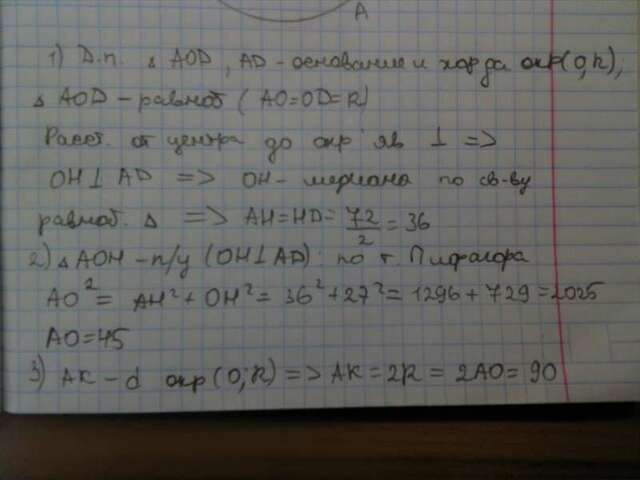 A
1) Д.п. △ AOD, AD - основание и хорда окр(O,R),
△ AOD - равноб (AO=OD=R)
Расст. от центра до окр яв ⊥ =>
OH⊥AD => OH - медиана по св-ву
равноб. △ => AH=HD= 72/2 = 36
2) △ AOH - п/у (OH⊥AD) по т. Пифагора
AO² = AH² + OH² = 36² + 27² = 1296 + 729 = 2025
AO=45
3) AK - d окр(O;R) => AK = 2R = 2AO = 90